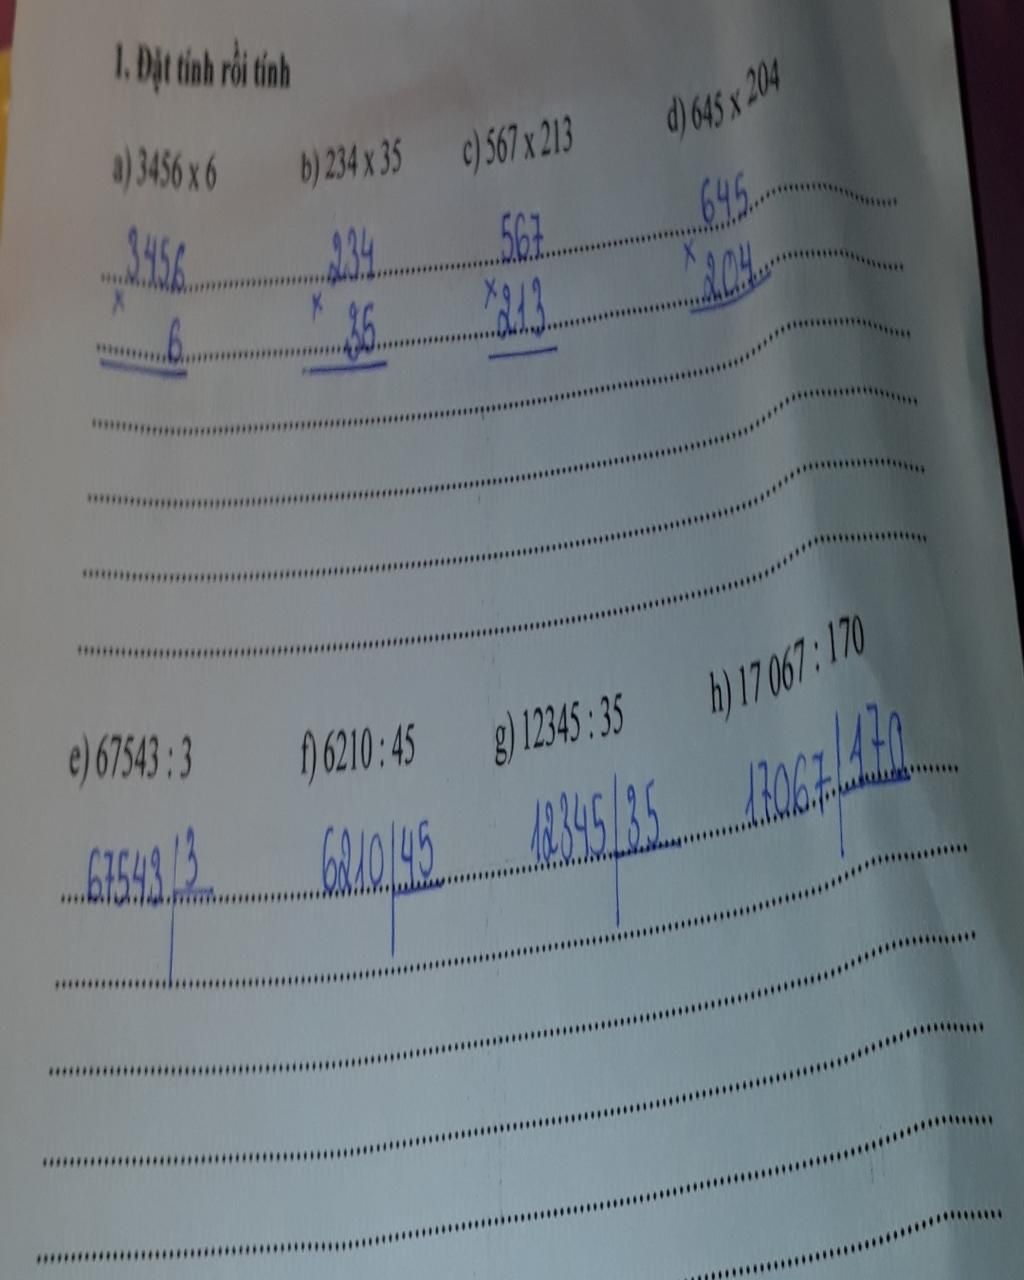 1. Đặt tính rồi tính
a) 3456 x 6 b) 234 x 35 c) 567 x 213 d) 645 x 204
3456 234 567 645
x x x x
6 35 213 204
e) 67543 : 3 f) 6210 : 45 g) 12345 : 35 h) 17 067 : 170
67543 3 6210 45 12345 35 17067 170